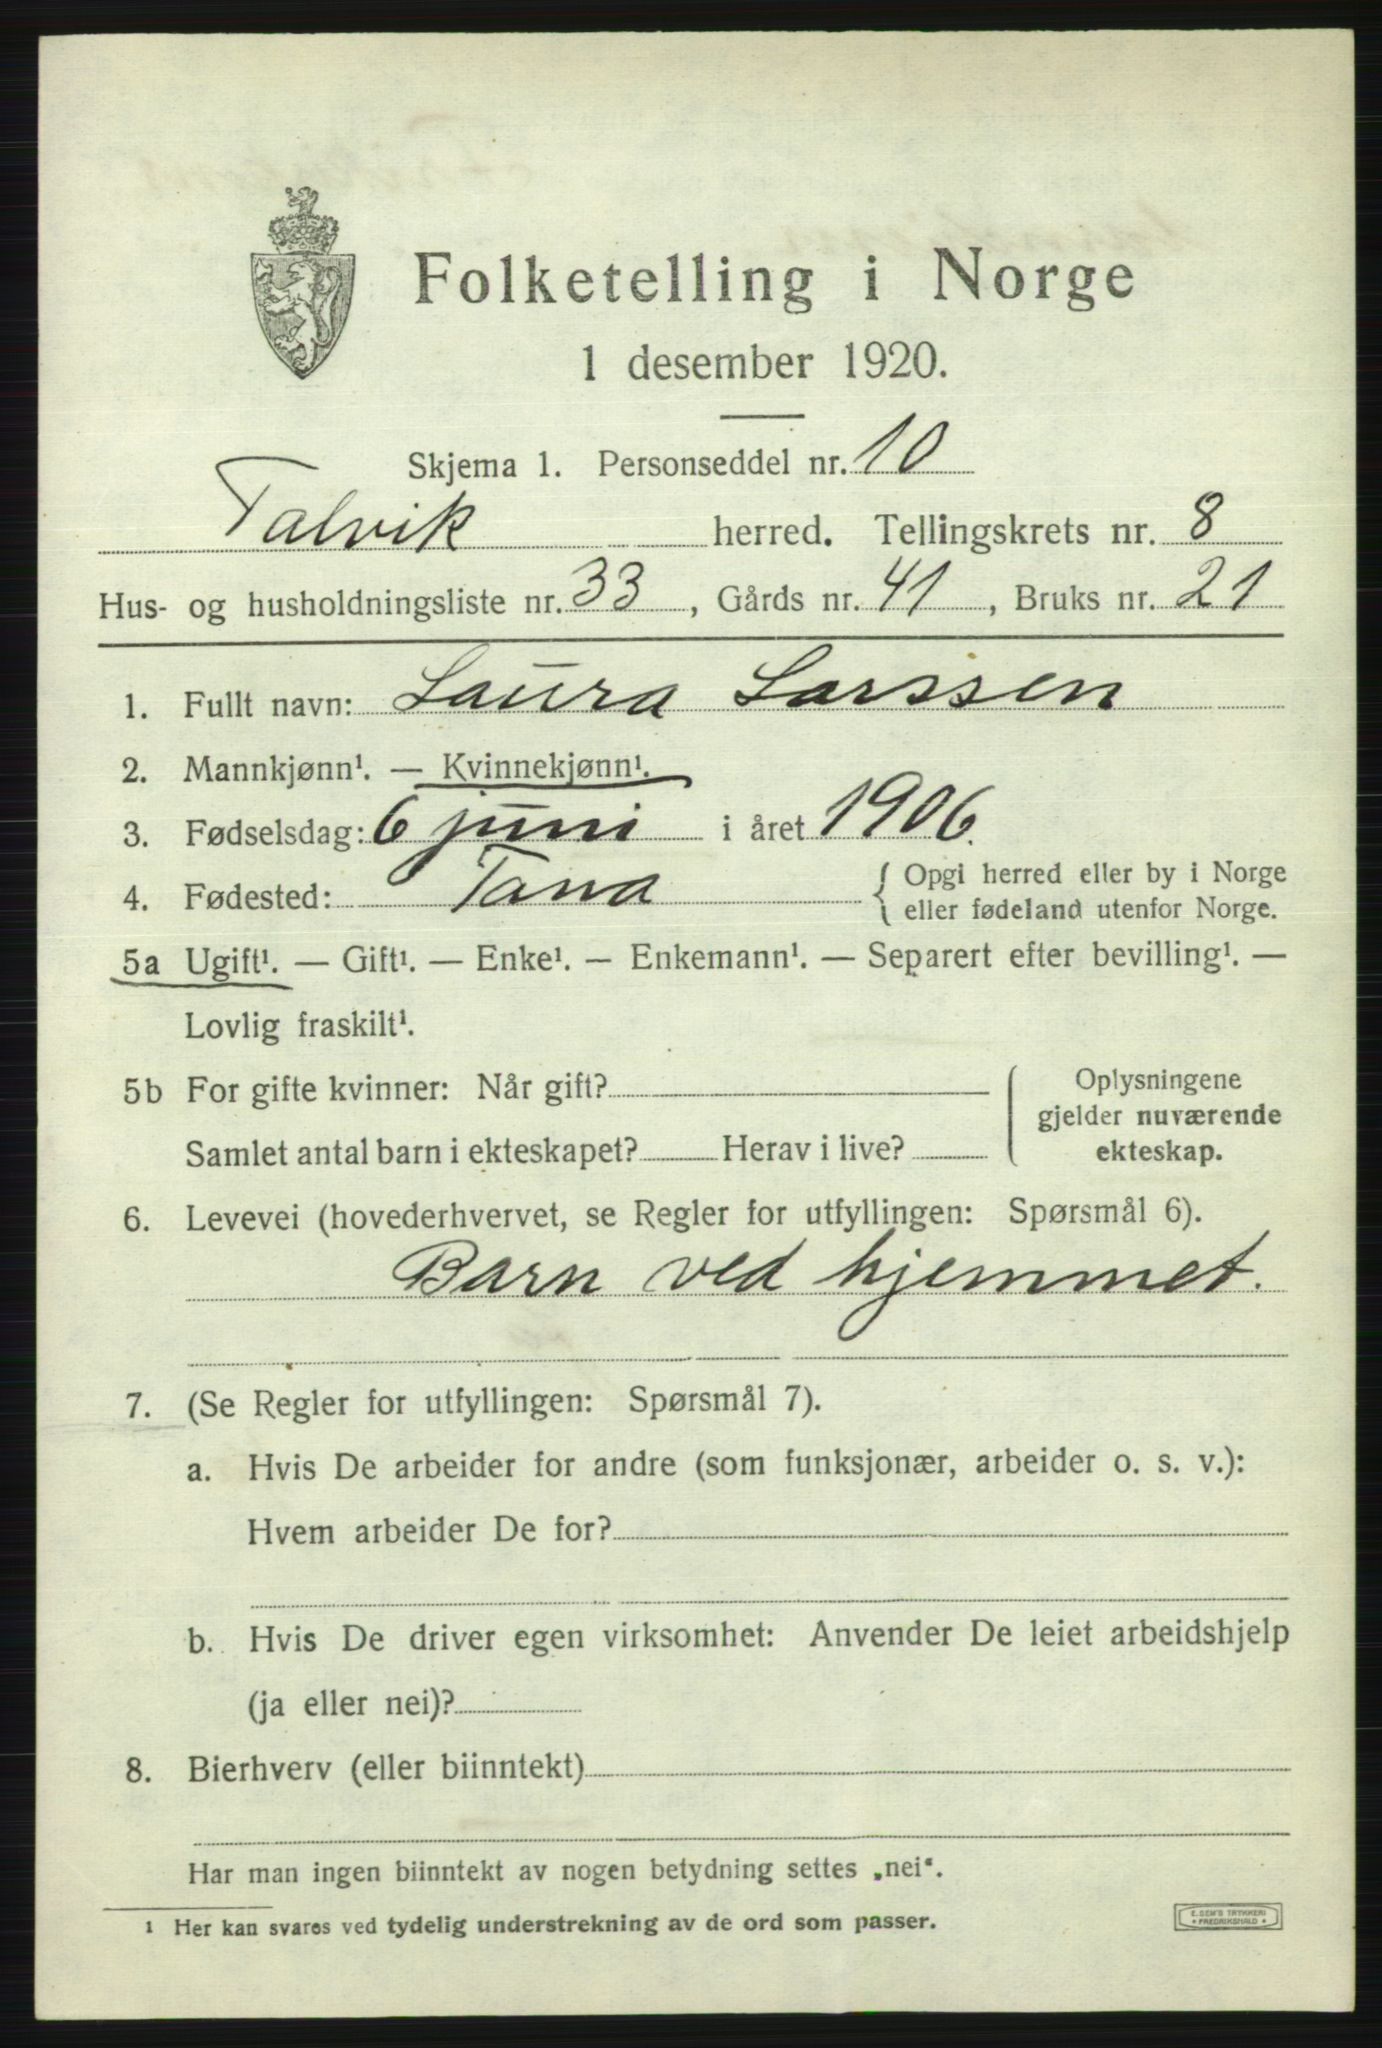 Folketelling i Norge
1 desember 1920.
Skjema 1. Personseddel nr. 10
Talvik herred. Tellingskrets nr. 8
Hus- og husholdningsliste nr. 33, Gårds nr. 41, Bruks nr. 21
1. Fullt navn: Laura Larssen
2. Mannkjønn¹. — Kvinnekjønn¹.
3. Fødselsdag: 6 juni i året 1906.
4. Fødested: Tana { Opgi herred eller by i Norge
eller fødeland utenfor Norge.
5a Ugift¹. — Gift¹. — Enke¹. — Enkemann¹. — Separert efter bevilling¹. —
Lovlig fraskilt¹.
5b For gifte kvinner: Når gift?
Samlet antal barn i ekteskapet? Herav i live?
Oplysningene
gjelder nuværende
ekteskap.
6. Levevei (hovederhvervet, se Regler for utfyllingen: Spørsmål 6).
Barn ved hjemmet.
7. (Se Regler for utfyllingen: Spørsmål 7).
a. Hvis De arbeider for andre (som funksjonær, arbeider o. s. v.):
Hvem arbeider De for?
b. Hvis De driver egen virksomhet: Anvender De leiet arbeidshjelp
(ja eller nei)?
8. Bierhverv (eller biinntekt)
Har man ingen biinntekt av nogen betydning settes „nei“.
¹ Her kan svares ved tydelig understrekning av de ord som passer.
E. SEM'S TRYKKERI
• FREDRIKSHALD •